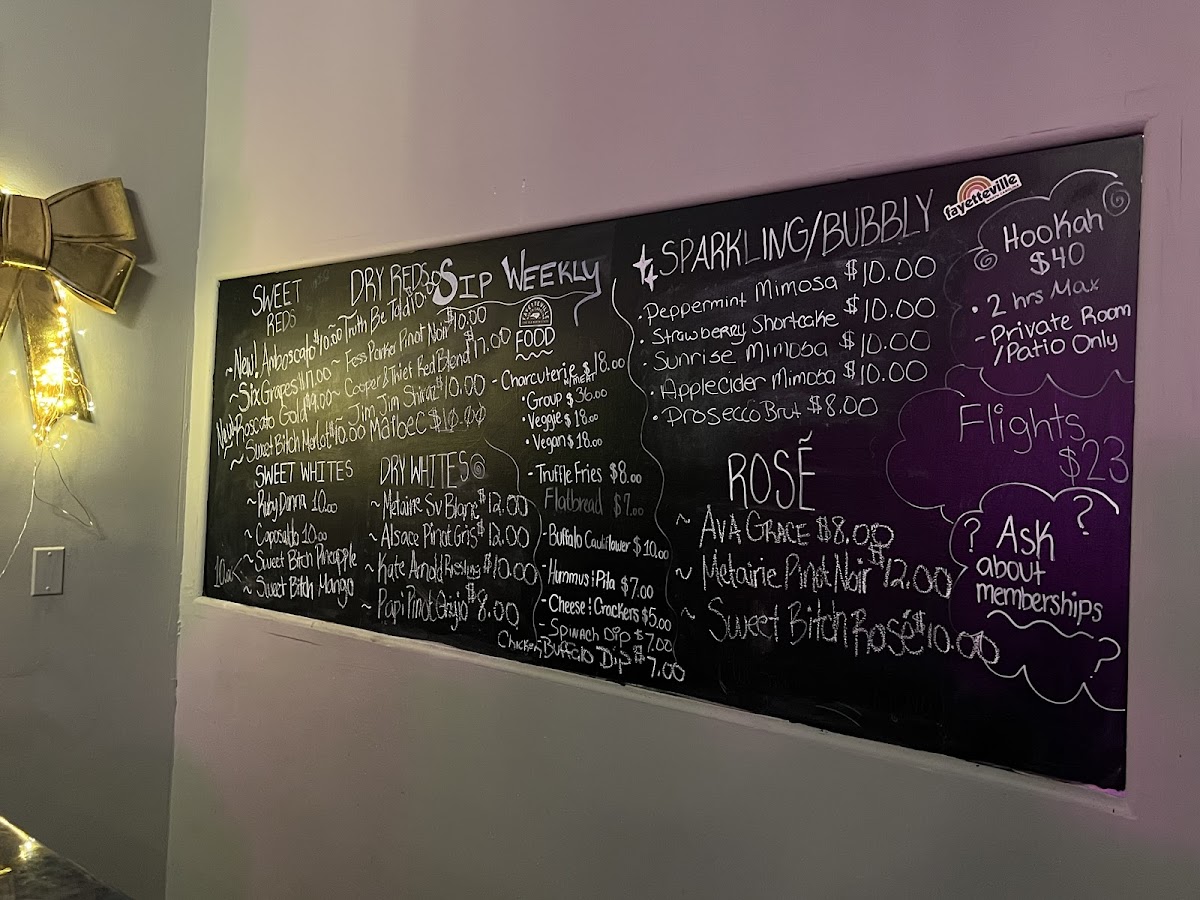 SWEET
REDS
~ New! Amboscato $10.00
~ Six Grapes $17.00
New! Roscato Gold $9.00
~ Sweet Bitch Merlot $10.00
DRY REDS
Truth Be Told
~ Fess Parker Pinot Noir $10.00
~ Cooper & Thief Red Blend $17.00
~ Jim Jim Shiraz $10.00
Malbec $10.00
SWEET WHITES
~ Ruby Donna 10.00
~ Caposaldo 10.00
~ Sweet Bitch Pineapple
~ Sweet Bitch Mango
10.00
DRY WHITES
~ Metairie Sv Blanc $12.00
~ Alsace Pinot Gris $12.00
~ Kate Arnold Riesling $10.00
~ Papi Pinot Grigio $8.00
SIP WEEKLY
FOOD
- Charcuterie $18.00
w/meat
• Group $36.00
• Veggie $18.00
• Vegan $18.00
- Truffle Fries $8.00
Flatbread $7.00
- Buffalo Cauliflower $10.00
- Hummus & Pita $7.00
- Cheese & Crackers $5.00
- Spinach Dip $7.00
Chicken Buffalo Dip $7.00
SPARKLING/BUBBLY
• Peppermint Mimosa $10.00
• Strawberry Shortcake $10.00
- Sunrise Mimosa $10.00
• Apple Cider Mimosa $10.00
• Prosecco Brut $8.00
ROSÉ
~ AVA GRACE $8.00
~ Metairie Pinot Noir $12.00
~ Sweet Bitch Rosé $10.00
fayetteville
Hookah
$40
• 2 hrs Max
- Private Room
/Patio Only
Flights
$23
? Ask ?
about
memberships
?